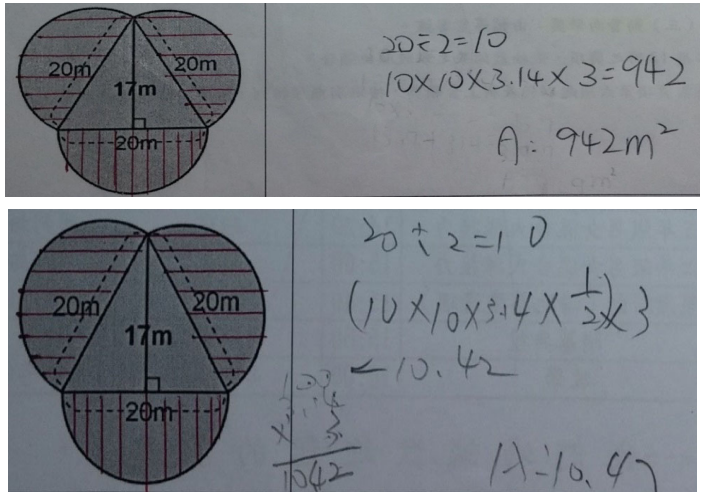 20m
20m
17m
20m
20÷2=10
10×10×3.14×3=942
A: 942m²
20m
20m
17m
20m
20÷2=10
(10×10×3.14×1/2)×3
=10.42
× 3
1042